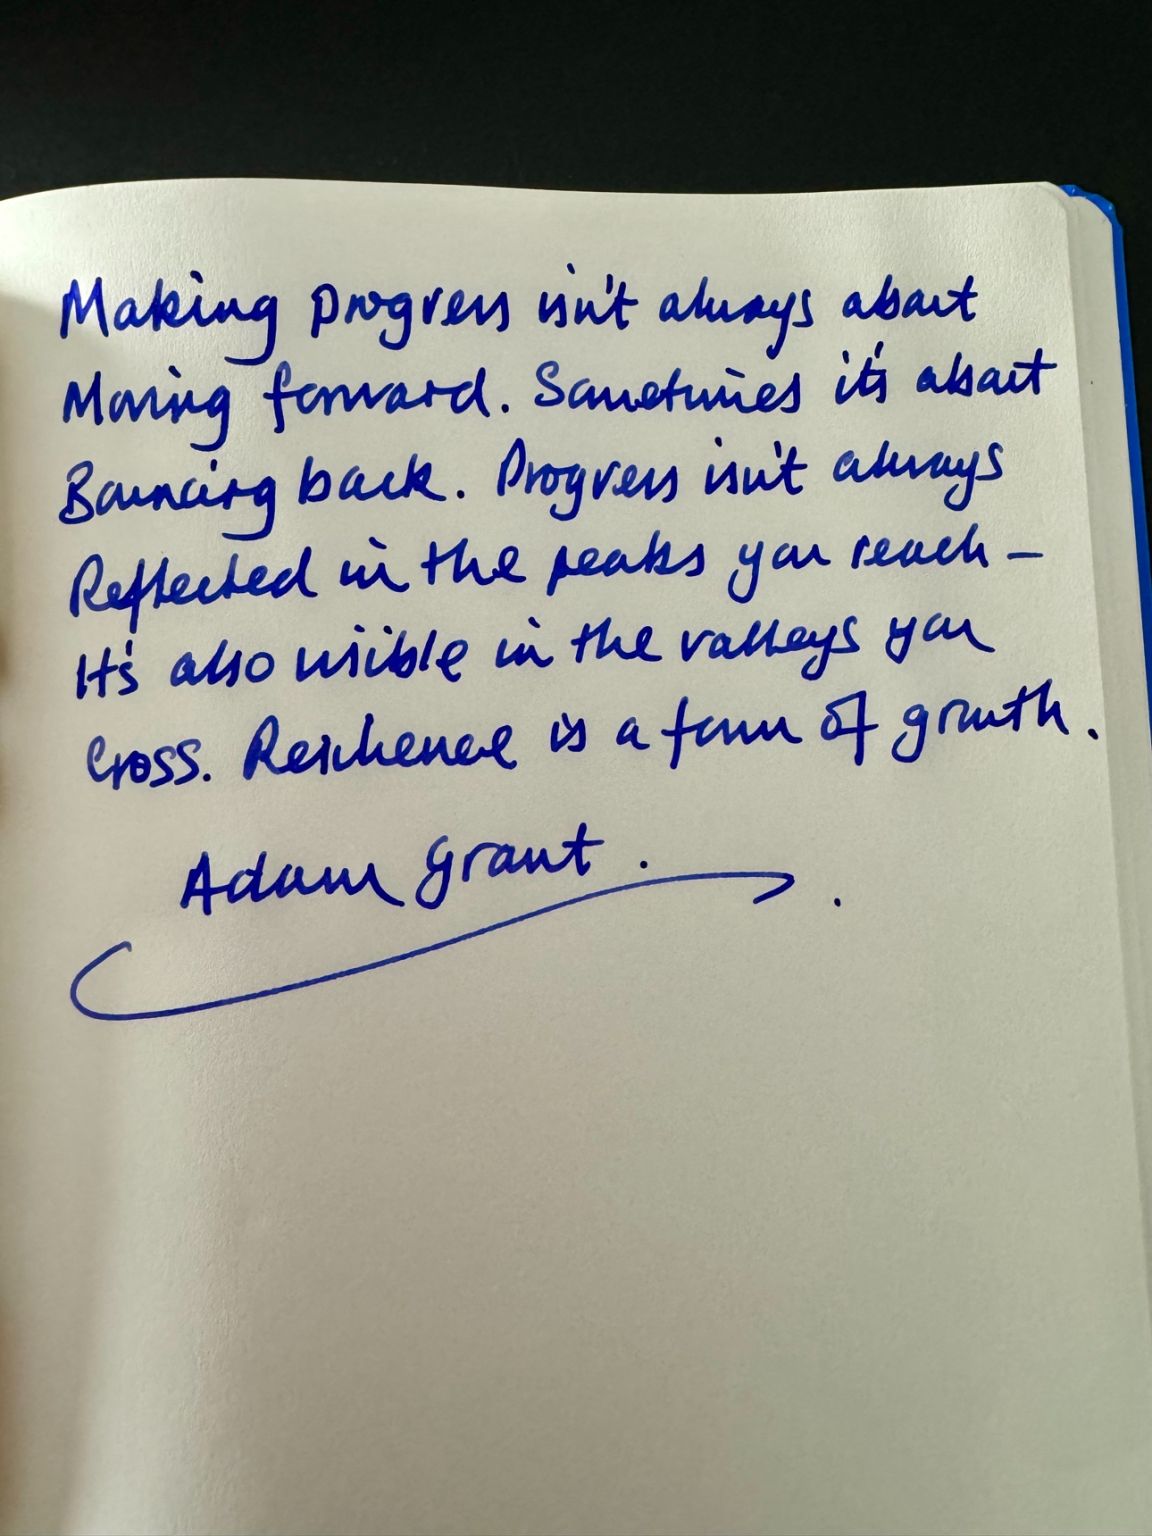 Making progress isn't always about
Moving forward. Sometimes it's about
Bouncing back. Progress isn't always
Reflected in the peaks you reach –
It's also visible in the valleys you
Cross. Resilience is a form of growth.
Adam Grant.